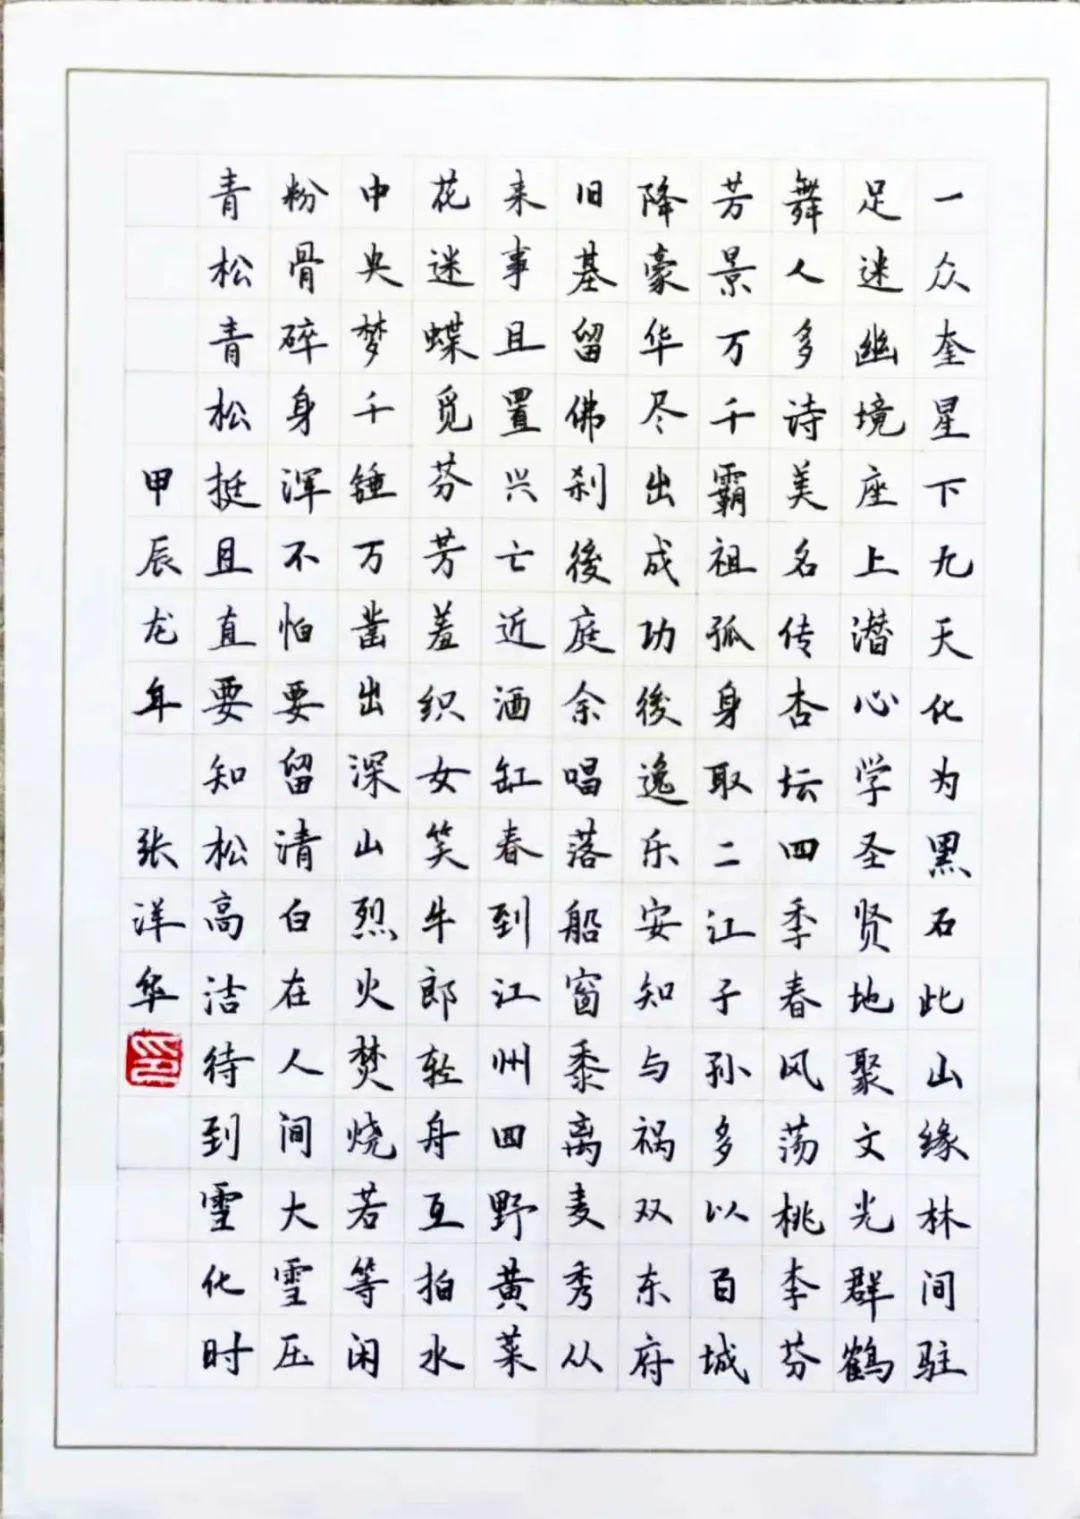 一众奎星下九天化为黑石此山缘林间驻
足迷幽境座上潜心学圣贤地聚文光群鹤
舞人多诗美名传杏坛四季春风荡桃李芬
芳景万千霸祖孤身取二江子孙多以百城
降豪华尽出成功後逸乐安知与祸双东府
旧基留佛刹後庭余唱落船窗黍离麦秀从
来事且置兴亡近酒缸春到江州四野黄菜
花迷蝶觅芬芳羞织女笑牛郎轻舟互拍水
中央梦千锤万凿出深山烈火焚烧若等闲
粉骨碎身浑不怕要留清白在人间大雪压
青松青松挺且直要知松高洁待到雪化时
甲辰龙年 张洋华
印